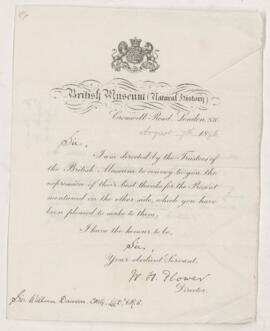 British Museum (Natural History)
Cromwell Road, London, S.W.
August 7th 1896
Sir,
I am directed by the Trustees of
the British Museum to convey to you the
expression of their best thanks for the Present
mentioned on the other side, which you have
been pleased to make to them.
I have the honour to be,
Sir,
Your obedient Servant,
W H Flower
Director.
Sir William Dawson, CMG, LLD, F.R.S.